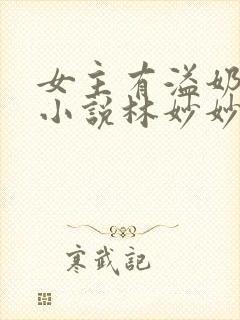 女主有溢奶
小說林妙妙
寒武記